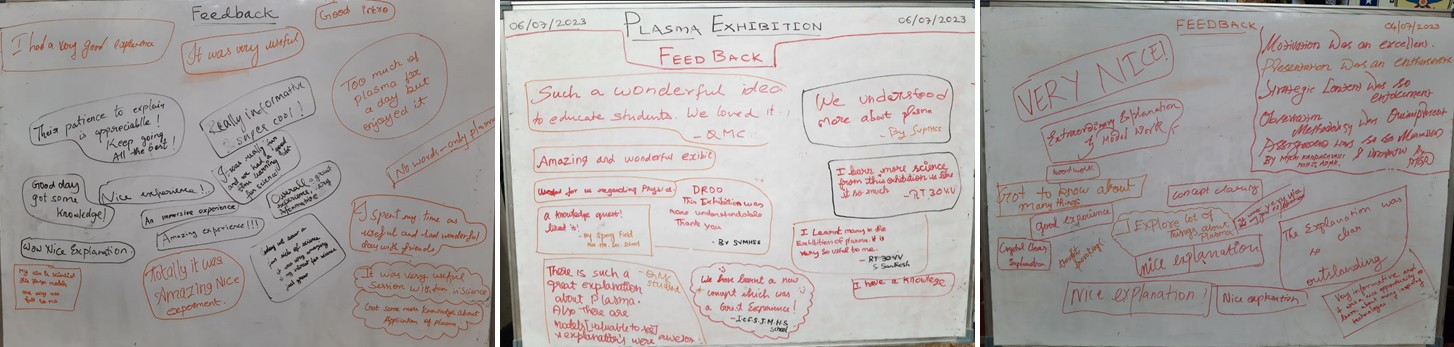 Feedback
Good intro
I had a very good experience
It was very useful
Too much of
plasma for
a day but
enjoyed it
Their patience to explain
is appreciable!
Keep going
All the best!
Really informative
super cool!!
No words - only plasma
I was really fun
and we had a good
time learning
for science
Good day
got some
knowledge!
Nice experience!
An immersive experience
Amazing experience!!!
Overall a great
experience, very
informative
Wow Nice Explanation.
Totally it was
Amazing Nice
experiment.
I spent my time as
useful and had wonderful
day with friends
It was very useful
Session with fun in Science
Got some more knowledge about
Application of Plasma
06/07/2023
PLASMA EXHIBITION
06/07/2023
FEEDBACK
Such a wonderful idea
to educate students. We loved it.
- QMC
We understood
more about plasma
- By SVMHSS
Amazing and wonderful exibit
Useful for us regarding Physics
DRDO
This Exhibition was
more understandable
Thank you
- BY SVMHSS
I learn more science
from this exhibition we like
it so much
- RT 30 V.V
a knowledge quest!
liked it!
- By Spring Field
I Learnt many in the
Exhibition of plasma. It is
very so useful to me.
- RT 30 VV
S. Santosh
There is such a
great explanation
about plasma.
Also there are
models [valuable to see]
explanation's were awesome.
- QMC
student
We have learnt a new
concept which was
a Good Experience!
School
I have a knowledge
FEEDBACK
04/07/2023
VERY NICE!
Motivation was an excellent.
Presentation was an enthusiastic
Strategic Content was so
Observation
Methodology was
Extraordinary Explanation
& Model Work
Good work
Got to know about
many things
concept clearing
good experience
I Explore lot of
things, about
Plasma
Crystal Clear
Explanation
nice explanation
The Explanation was
clear
outstanding
Nice explanation!
Nice explanation
Very informative and
it was a nice opportunity to
learn about many interesting
technologies